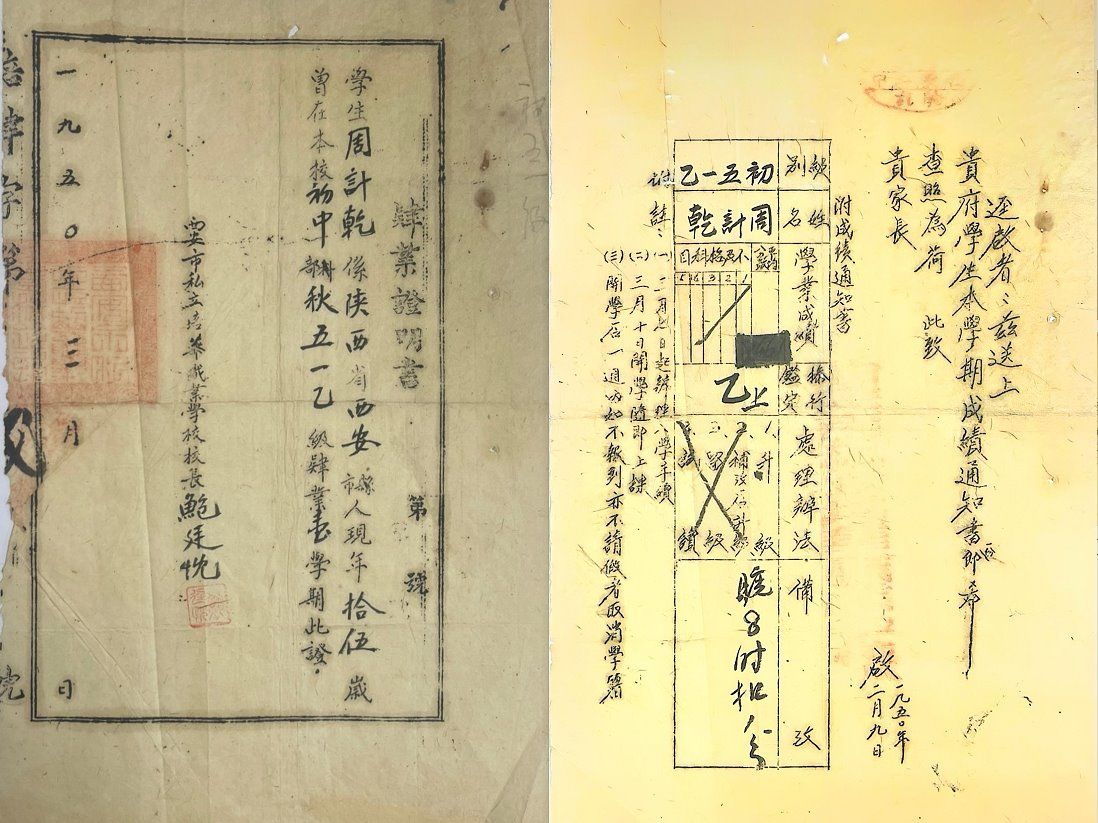 肄業證明書
第 號
學生周計乾係陝西省西安縣市人現年拾伍歲
曾在本校初中部秋五一乙級肄業壹學期此證
西安市私立培華職業學校校長
一九五〇年 月 日
逕啟者茲送上
貴府學生本學期成績通知書即希
查照為荷 此致
貴家長
啟
一九五〇年
二月九日
附成績通知書
級別 姓名 學業成績 操行鑑定 處理辦法 備攷
初五一乙
周計乾
不及格科目
乙上
1. 升級
曠8時扣
附註
(二) 三月十日開學隨即上課
(三) 開學后一週內如不報到亦不請假者取消學籍